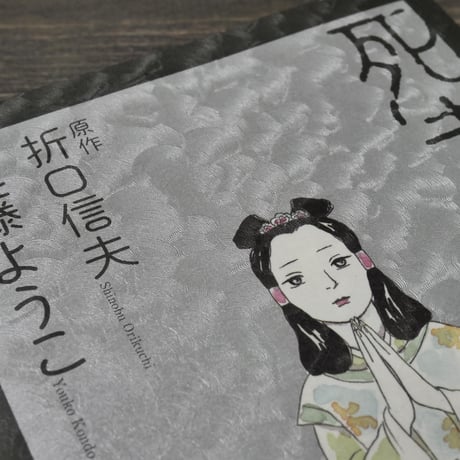 死
原作
折口信夫
Shinobu Orikuchi
藤ようこ
Youko Kondo